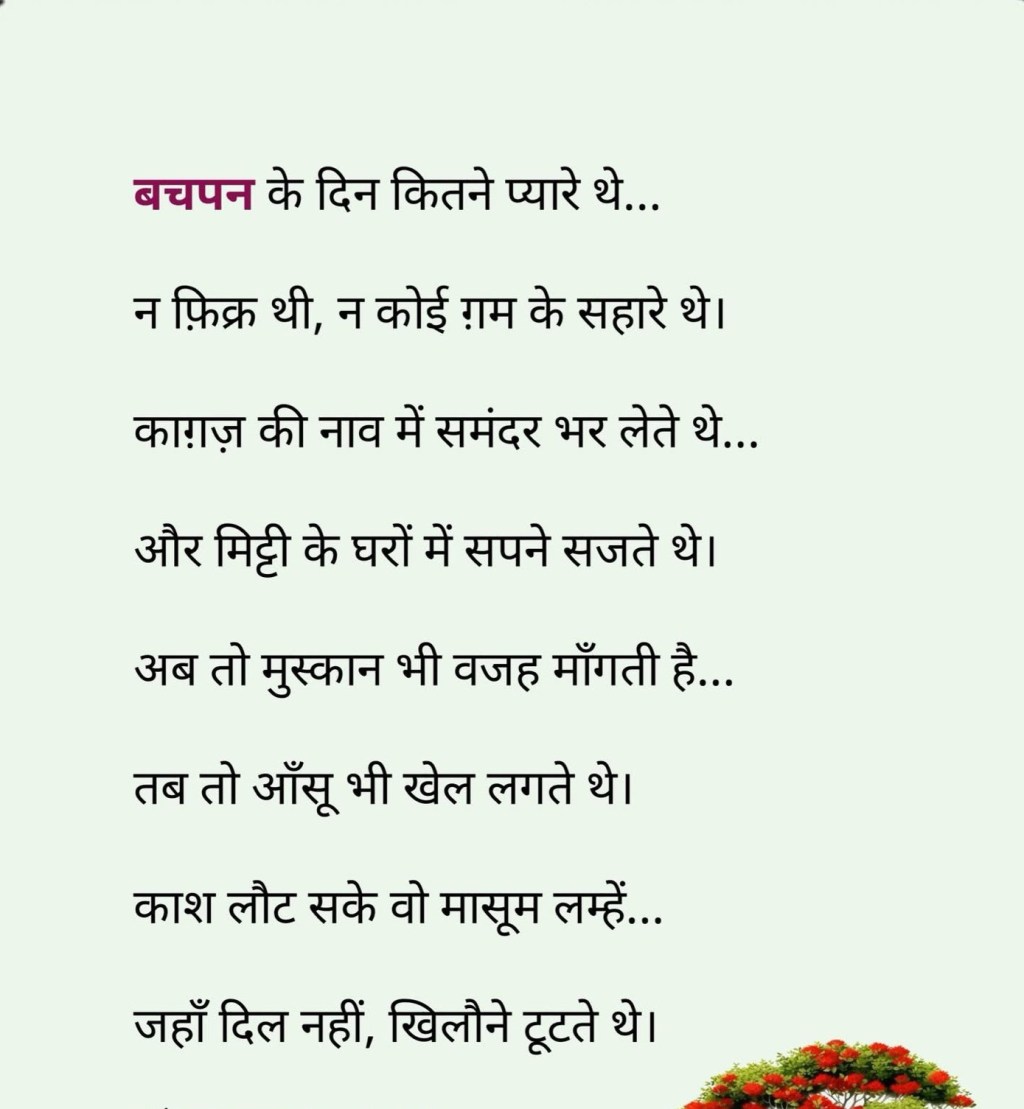 बचपन के दिन कितने प्यारे थे...
न फ़िक्र थी, न कोई ग़म के सहारे थे।
काग़ज़ की नाव में समंदर भर लेते थे...
और मिट्टी के घरों में सपने सजते थे।
अब तो मुस्कान भी वजह माँगती है...
तब तो आँसू भी खेल लगते थे।
काश लौट सके वो मासूम लम्हें...
जहाँ दिल नहीं, खिलौने टूटते थे।